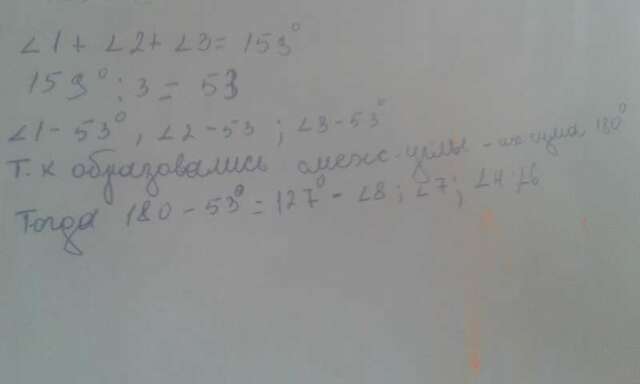 ∠1 + ∠2 + ∠3 = 159°
159° : 3 = 53
∠1 - 53°, ∠2 - 53 ; ∠3 - 53°
Т. к образовались смеж. углы - их сума 180°
Тогда 180 - 53° = 127° - ∠8 ; ∠7 ; ∠4 ; ∠6